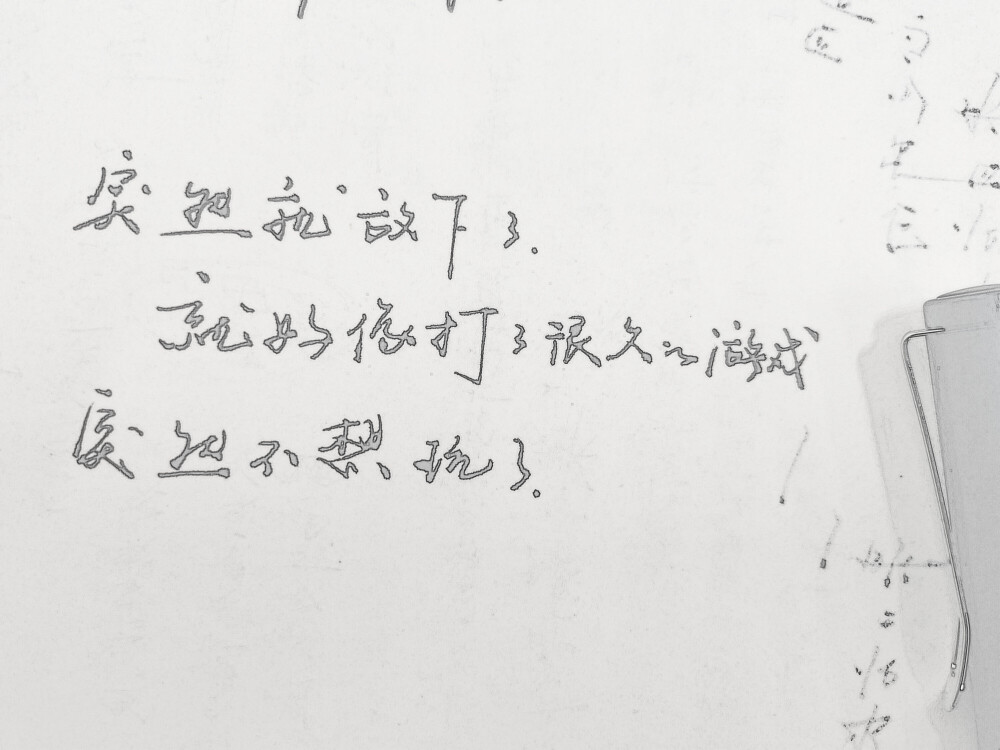 突然就放下了.
就好像打了很久的游戏
突然不想玩了.